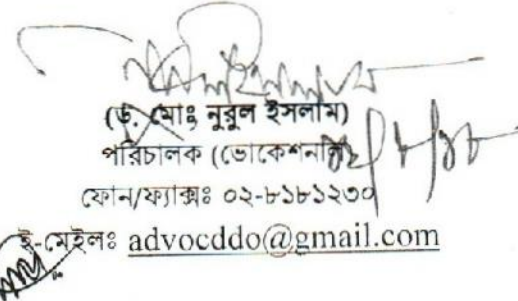 (ড. মোঃ নুরুল ইসলাম)
পরিচালক (ভোকেশনাল)
ফোন/ফ্যাক্সঃ ০২-৮১৮১২৩০
ই-মেইলঃ advocddo@gmail.com